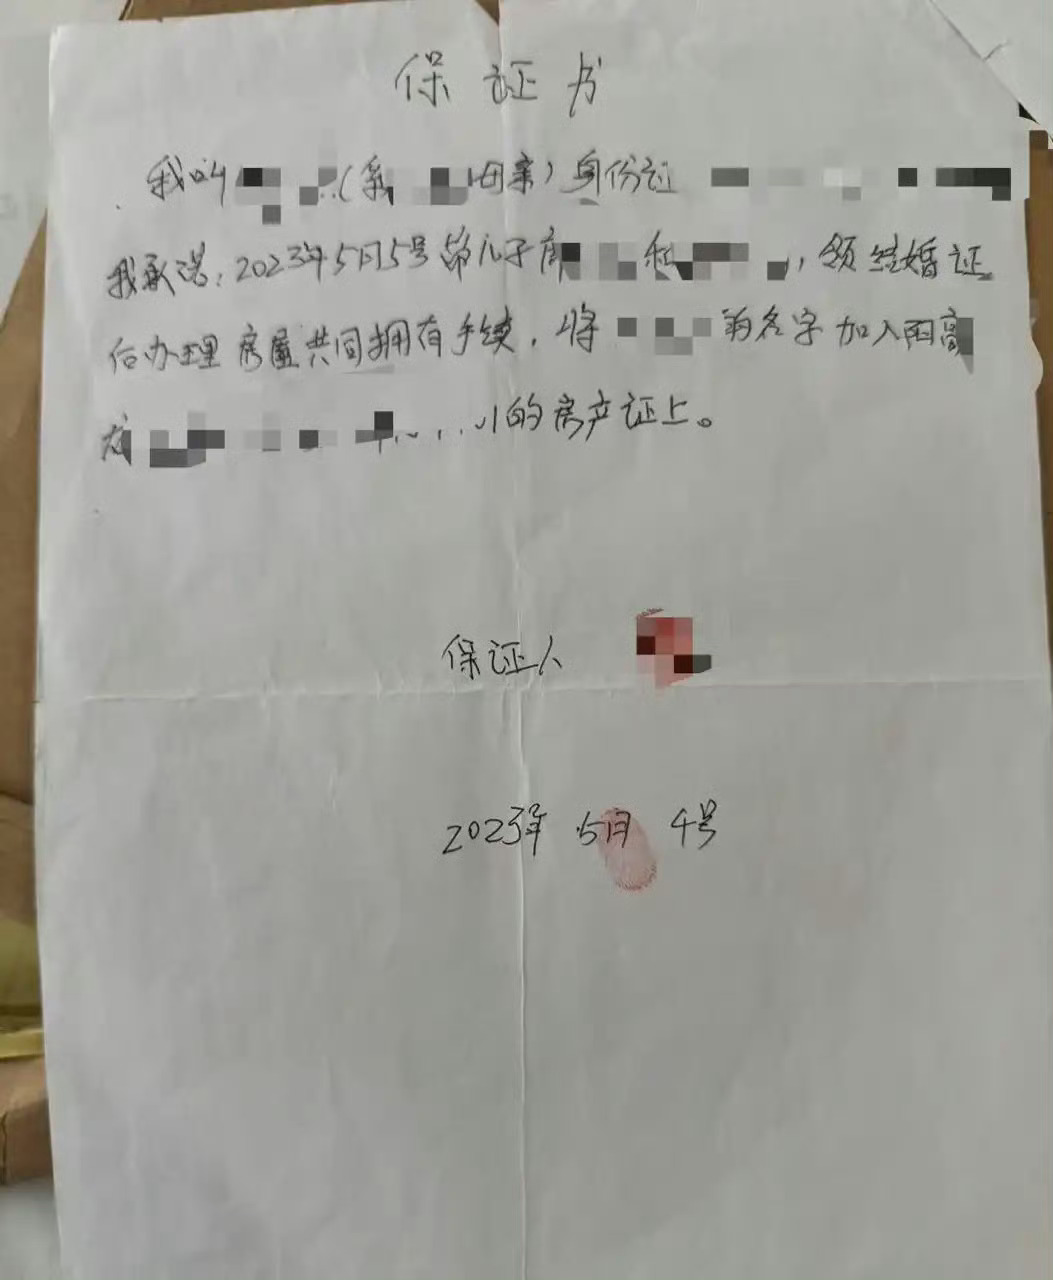 保证书
我叫(系母亲)身份证
我承诺:2023年5月5号等儿子和,领结婚证
后办理房屋共同拥有手续,将的名字加入
的房产证上。
保证人
2023年5月4号